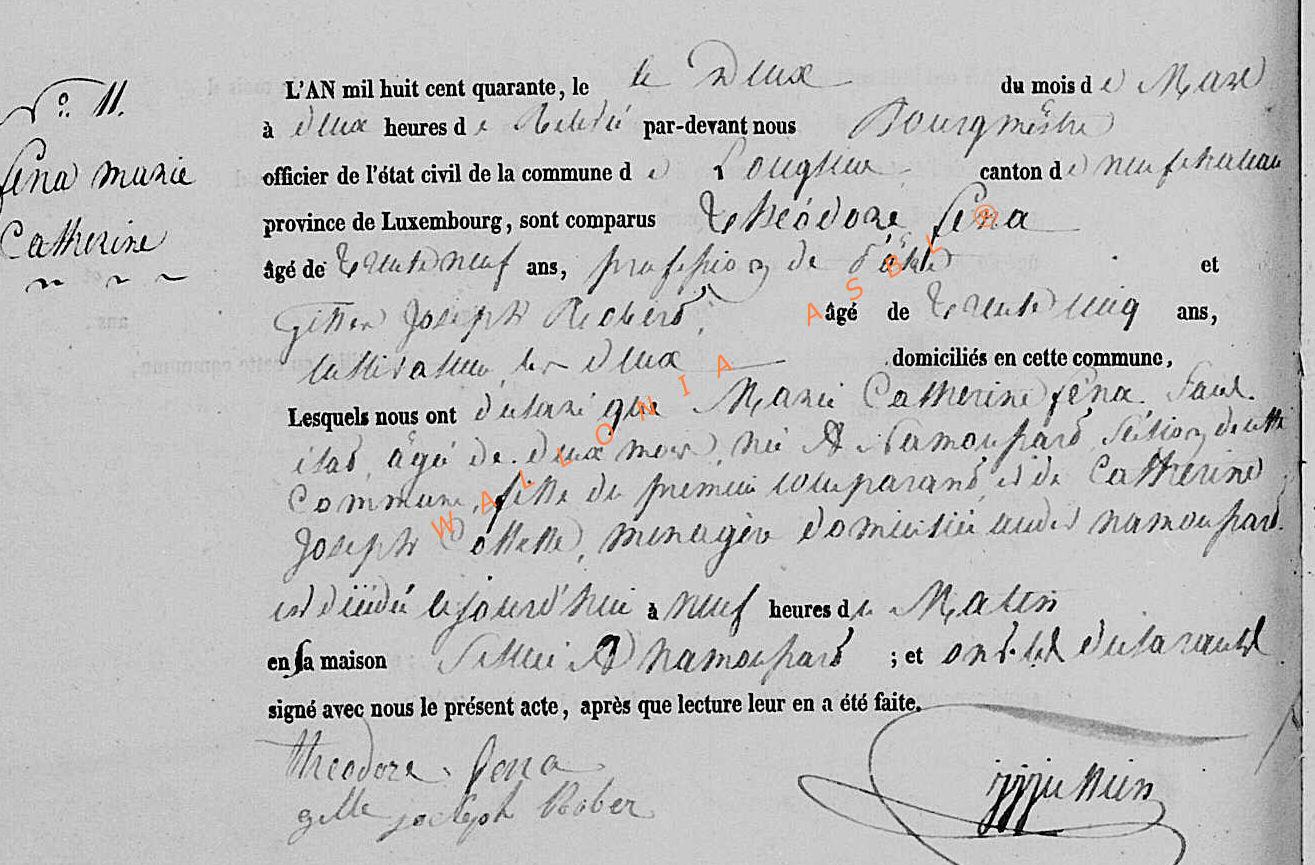 N.° 11.
féna marie
Catherine
L'AN mil huit cent quarante, le le Deux du mois d e Mars
à deux heures d e Relevé par-devant nous Bourgmêstre
officier de l'état civil de la commune d e Longlier canton d e neufchateau
province de Luxembourg, sont comparus théodore féna
âgé de trente neuf ans, profession de et
Joseph Robert, âgé de trente cinq ans,
cultivateur, les deux domiciliés en cette commune,
Lesquels nous ont déclaré que Marie Catherine féna Sans
état, âgé de deux mois, née A Namoussart Section de cette
Commune, fille du premier comparant, et de Catherine
Joseph Collette, ménagère domiciliée audit namoussart.
est décédé cejourd'hui à neuf heures du Matin
en sa maison Située A namoussart ; et ont les déclarants
signé avec nous le présent acte, après que lecture leur en a été faite.
théodore féna
gille joseph Rober
WALLONIA ASBL ®